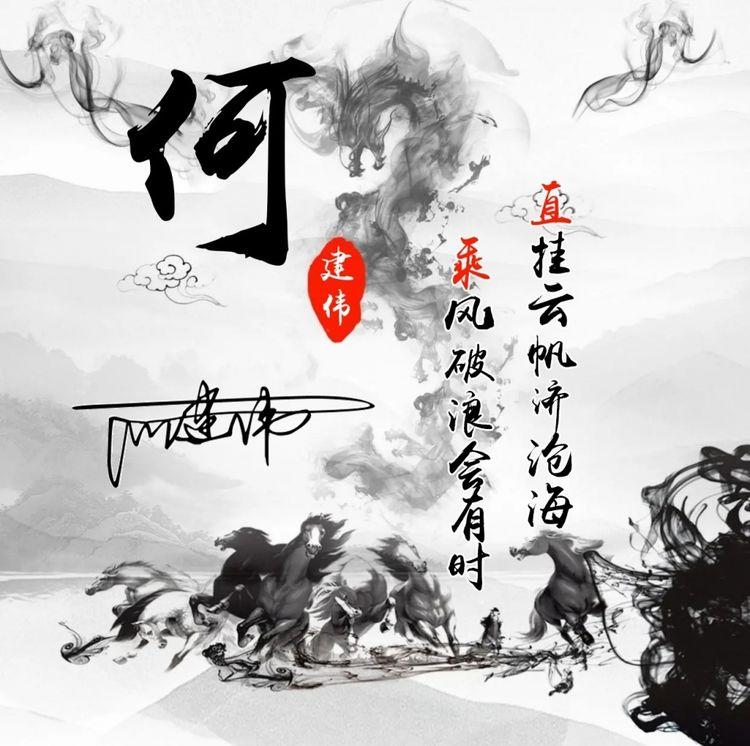 何
建伟
乘风破浪会有时
直挂云帆济沧海
何建伟